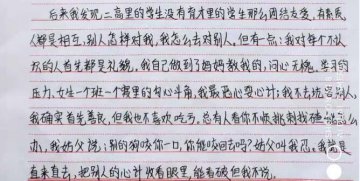 后来我发现二高里的学生没有育才里的学生那么团结友爱,有素质
人都是相互,别人怎样对我,我怎么去对别人。但有一点:我对每个不认
识的人首先都是礼貌,我自己做到了妈妈教我的,问心无愧。学习的
压力,女生一个班一个寝里的勾心斗角,我最恶心耍心计;我不去坑害别人,
我确实有些善良,但我也不喜欢吃亏。总有人看你不顺挑刺我碰怎么
办,我姑父说:别的狗咬你一口,你能咬回去吗?姑父叫我忍。我总是
直来直去,把别人的心计收看眼里,能看破但我不说。